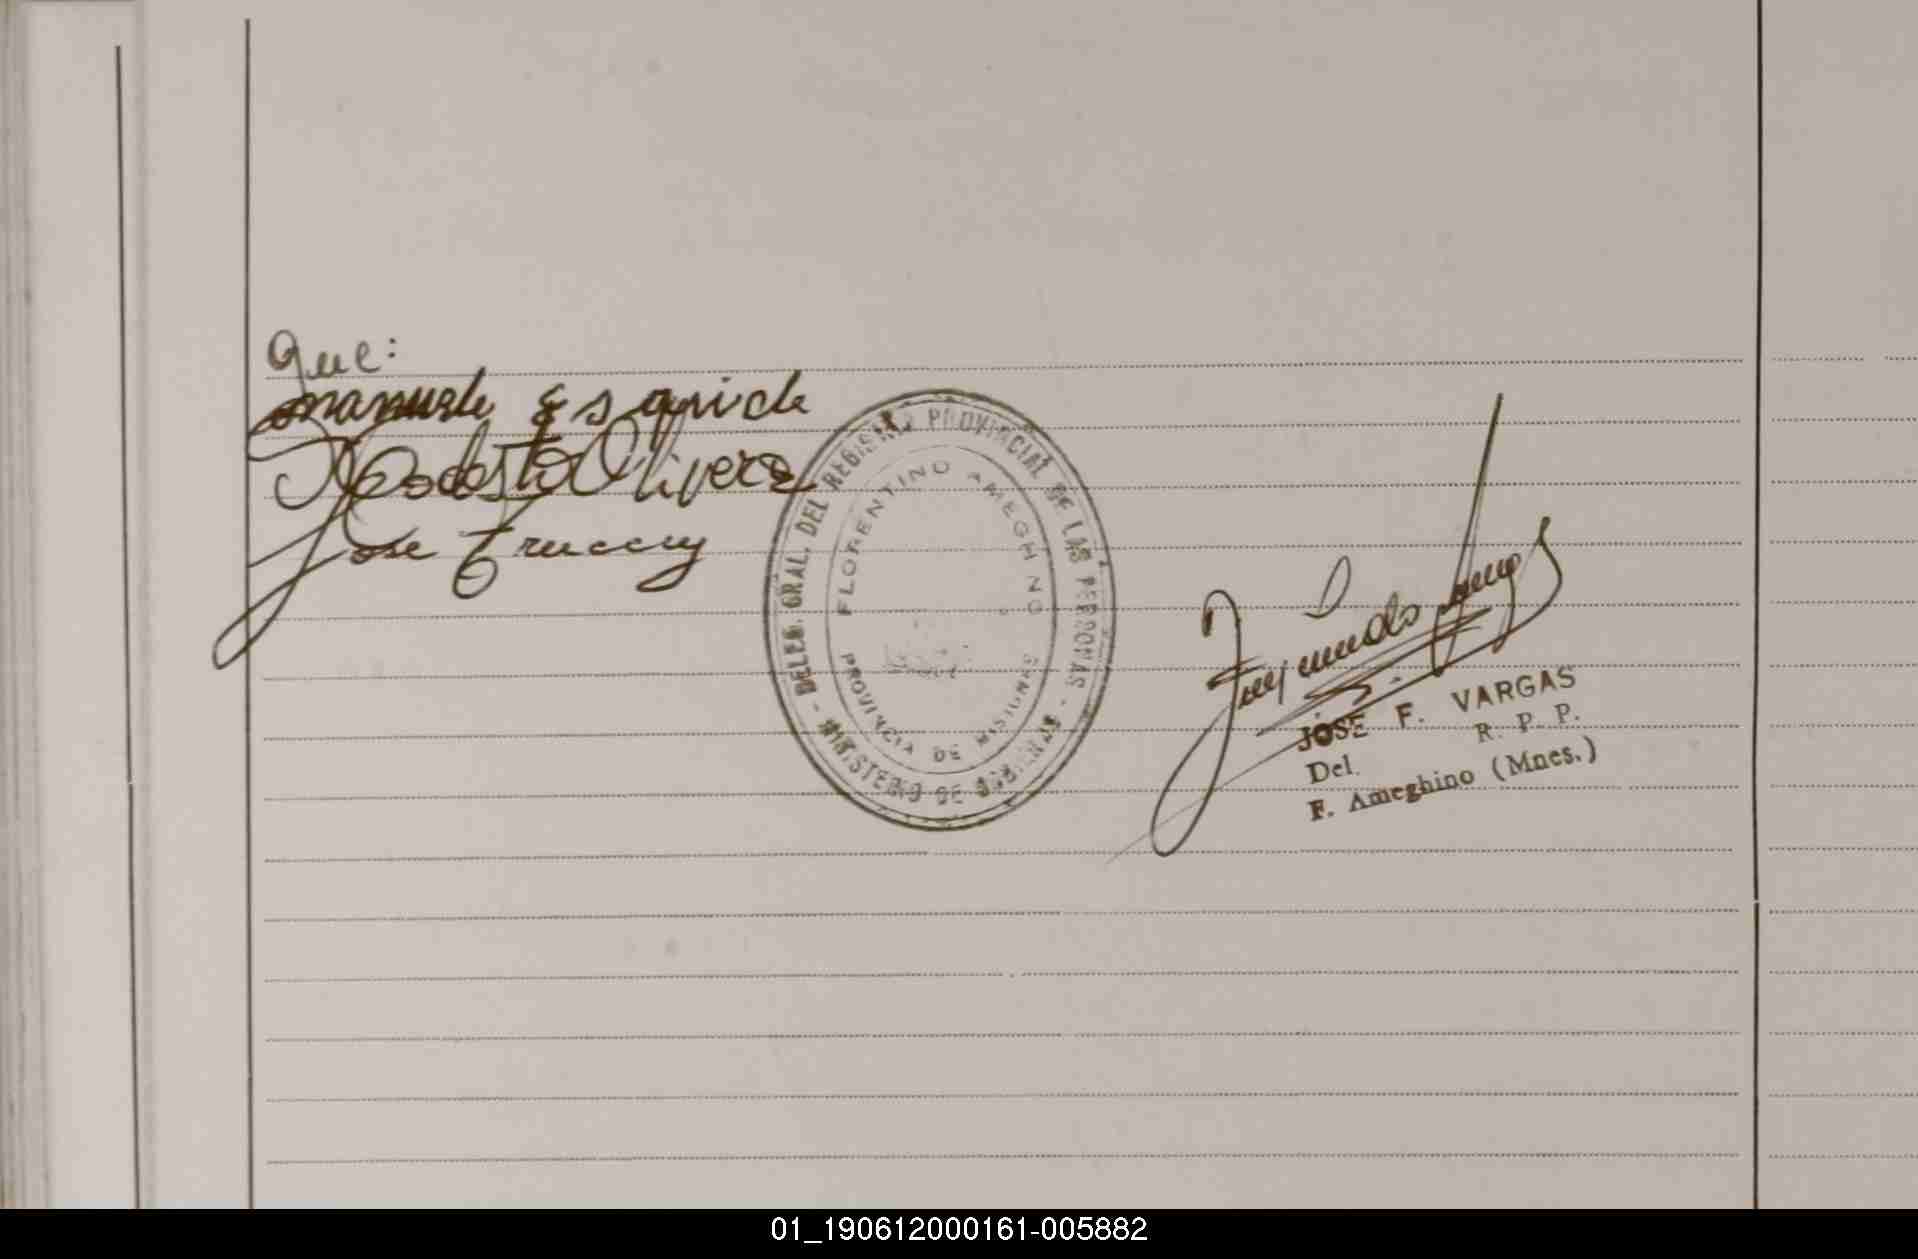 Que:
Modesto Olivera
Jose
DELEG. GRAL. DEL REGISTRO PROVINCIAL DE LAS PERSONAS - MINISTERIO DE GOBIERNO -
FLORENTINO AMEGHINO
PROVINCIA DE MISIONES
JOSE F. VARGAS
Del. R. P. P.
F. Ameghino (Mnes.)
01_190612000161-005882